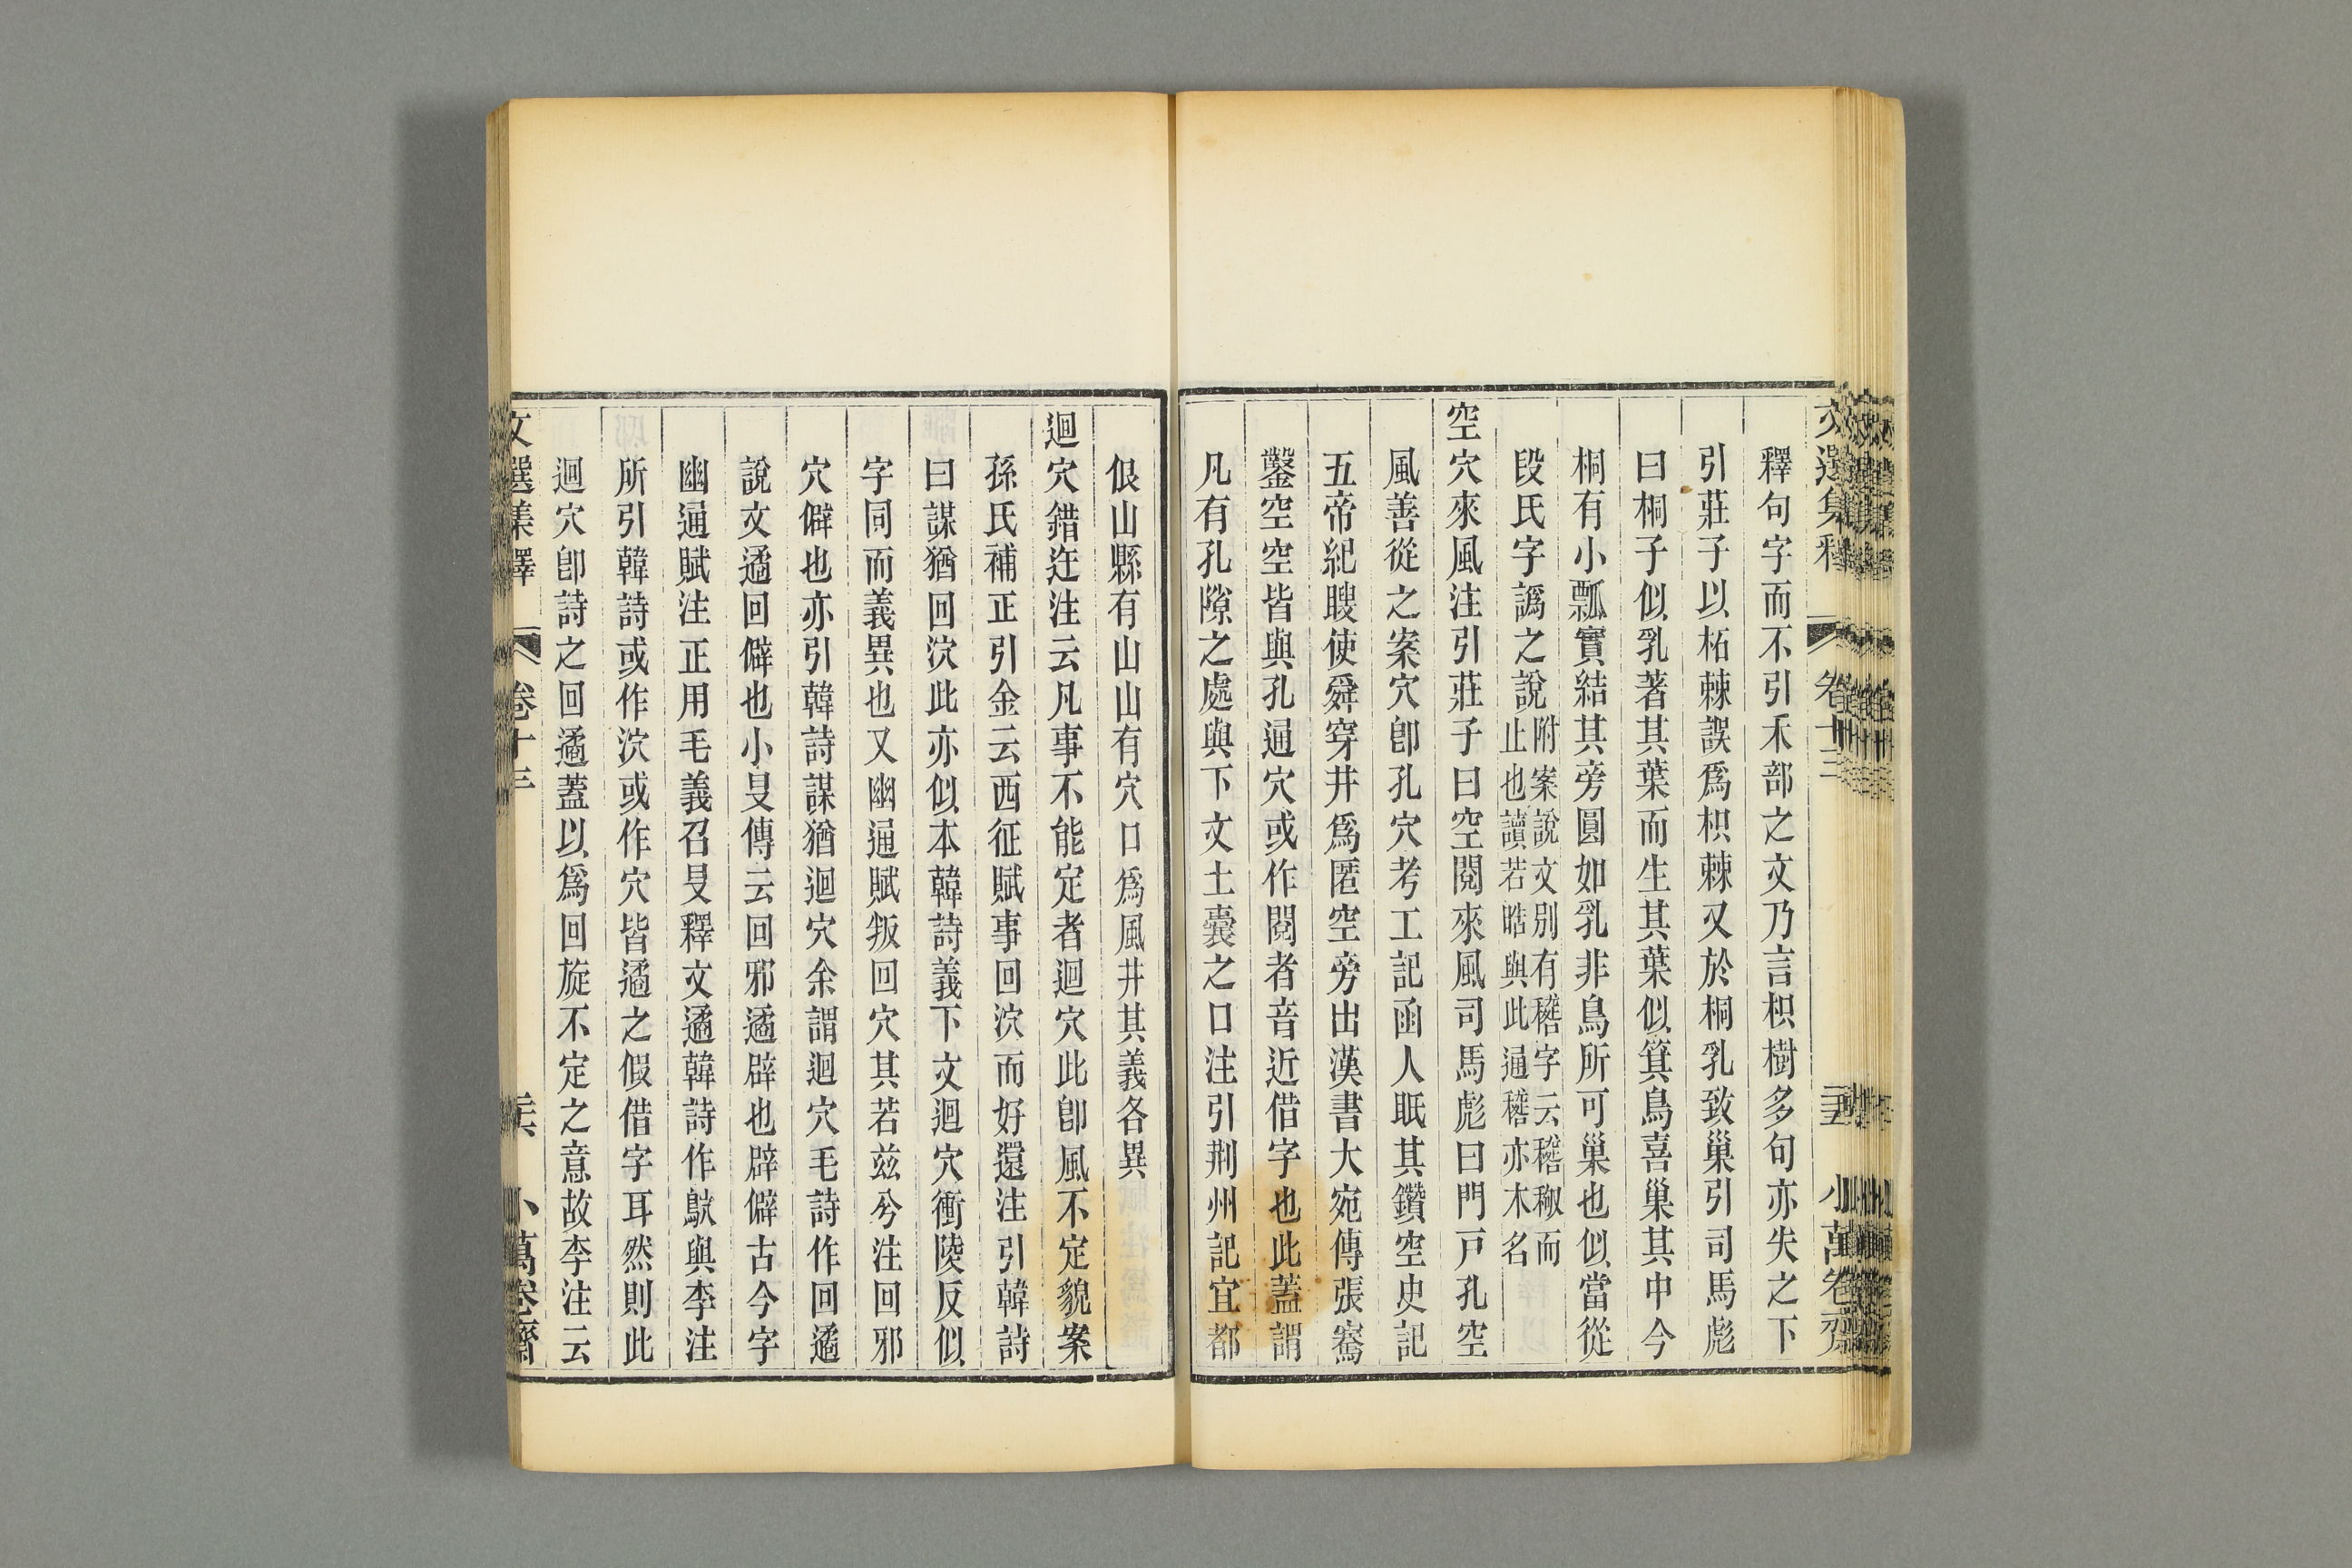 文選集釋 卷十三 三五 小萬卷齋
釋句字而不引禾部之文乃言枳樹多句亦失之下
引莊子以柘棘誤爲枳棘又於桐乳致巢引司馬彪
曰桐子似乳著其葉而生其葉似箕鳥喜巢其中今
桐有小瓢實結其旁圓如乳非鳥所可巢也似當從
段氏字譌之說附案說文別有𥢔字云𥢔䅳而
止也讀若晧與此通𥢔亦木名
空穴來風注引莊子曰空閱來風司馬彪曰門戸孔空
風善從之案穴卽孔穴考工記函人眡其鑽空史記
五帝紀瞍使舜穿井爲匿空旁出漢書大宛傳張騫
鑿空空皆與孔通穴或作閱者音近借字也此蓋謂
凡有孔隙之處與下文土囊之口注引荆州記宜都
佷山縣有山山有穴口爲風井其義各異
迴穴錯迕注云凡事不能定者迴穴此卽風不定貌案
孫氏補正引金云西征賦事回泬而好還注引韓詩
曰謀猶回泬此亦似本韓詩義下文迴穴衝陵反似
字同而義異也又幽通賦叛回穴其若茲兮注回邪
穴僻也亦引韓詩謀猶迴穴余謂迴穴毛詩作回遹
說文遹回僻也小旻傳云回邪遹辟也辟僻古今字
幽通賦注正用毛義召旻釋文遹韓詩作鴥與李注
所引韓詩或作泬或作穴皆遹之假借字耳然則此
迴穴卽詩之回遹蓋以爲回旋不定之意故李注云
文選集釋 卷十三 小萬卷齋